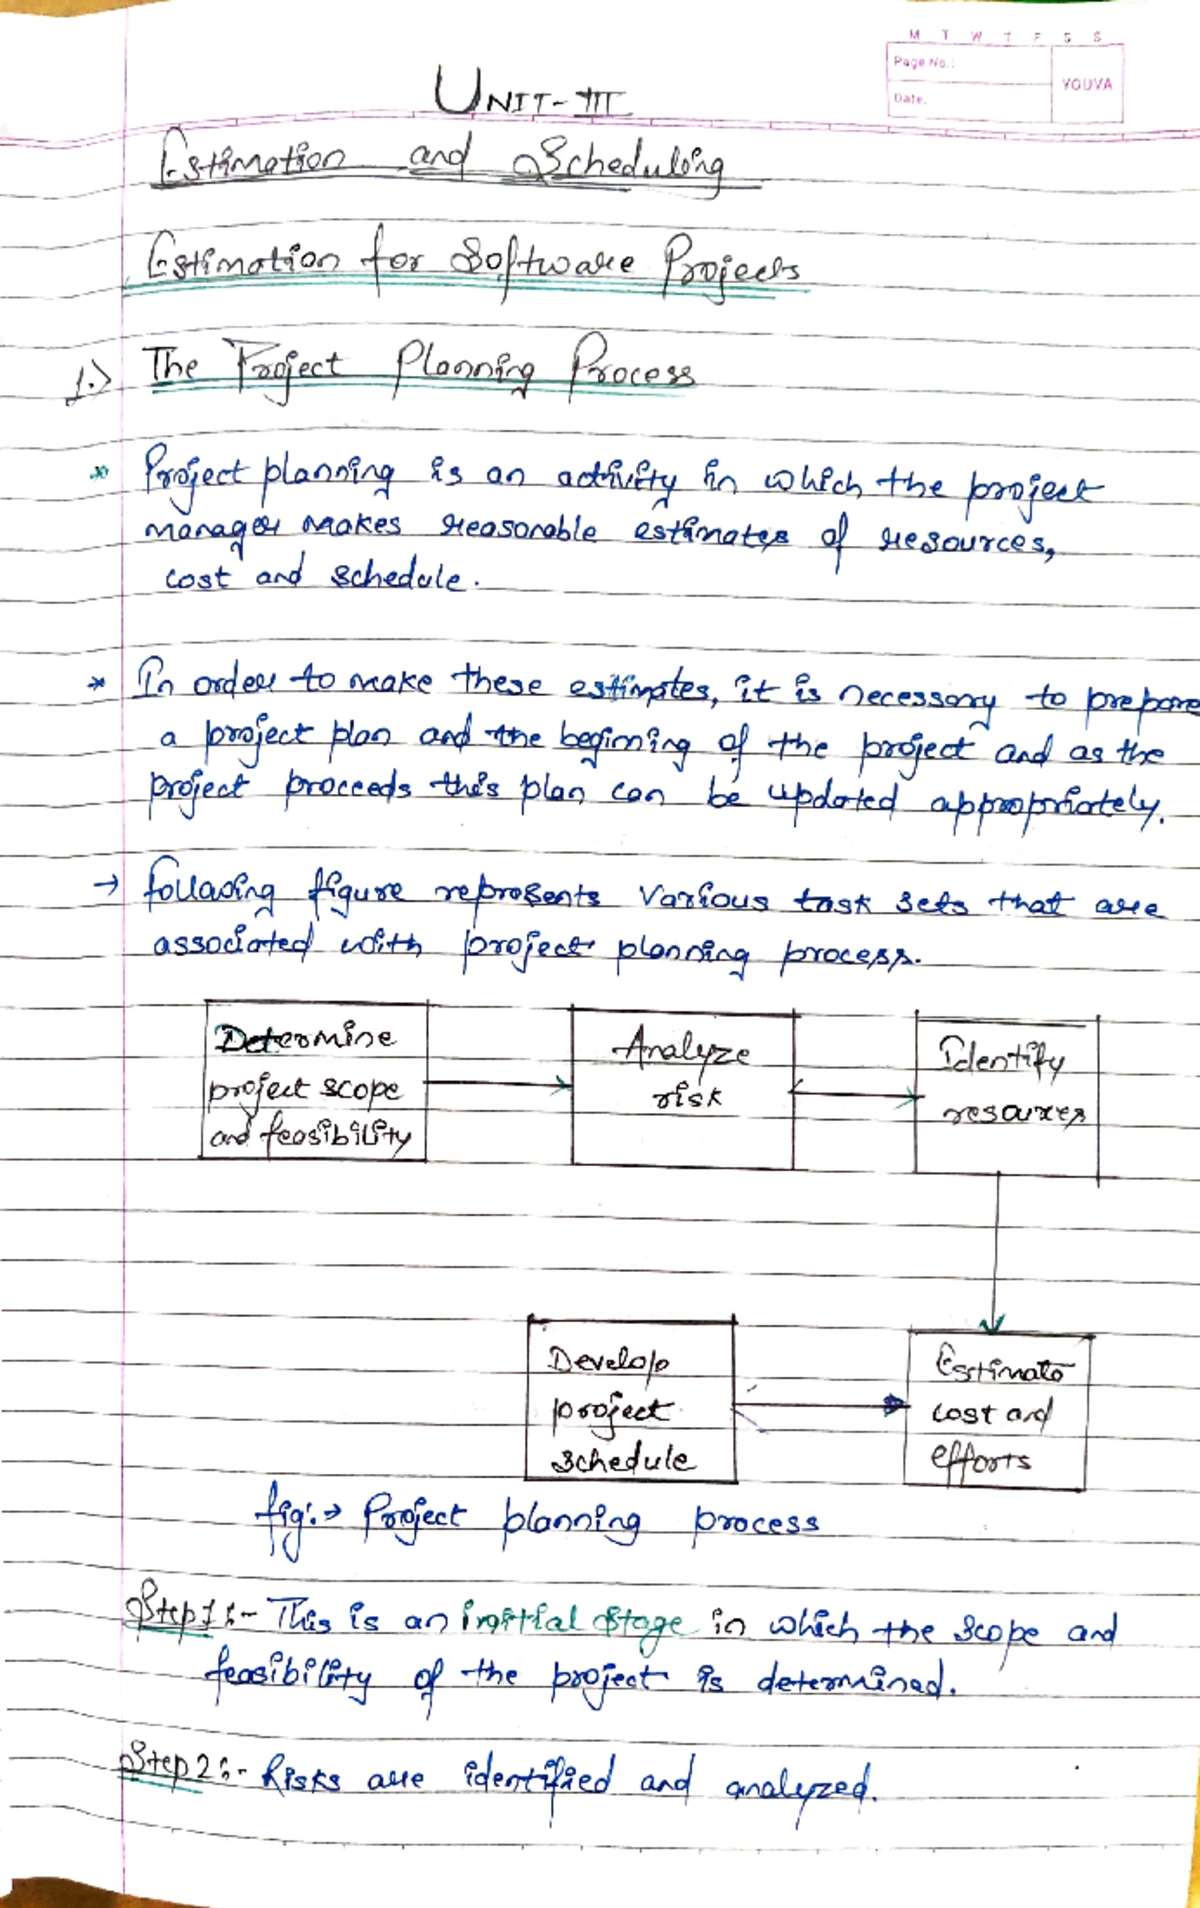 M T W T F S S
Page No.:
YOUVA
Date.
UNIT-III
Estimation and Scheduling
Estimation for Software Projects
1.) The Project Planning Process
* Project planning is an activity in which the project
manager makes reasonable estimates of resources,
cost and schedule.
* In order to make these estimates, it is necessary to prepare
a project plan and the beginning of the project and as the
project proceeds this plan can be updated appropriately.
→ following figure represents various task sets that are
associated with project planning process.
Determine
project scope
and feasibility
Analyze
risk
Identify
resources
Develop
project
schedule
Estimate
cost and
efforts
fig:→ Project planning process
Step 1:- This is an initial stage in which the scope and
feasibility of the project is determined.
Step 2:- Risks are identified and analyzed.